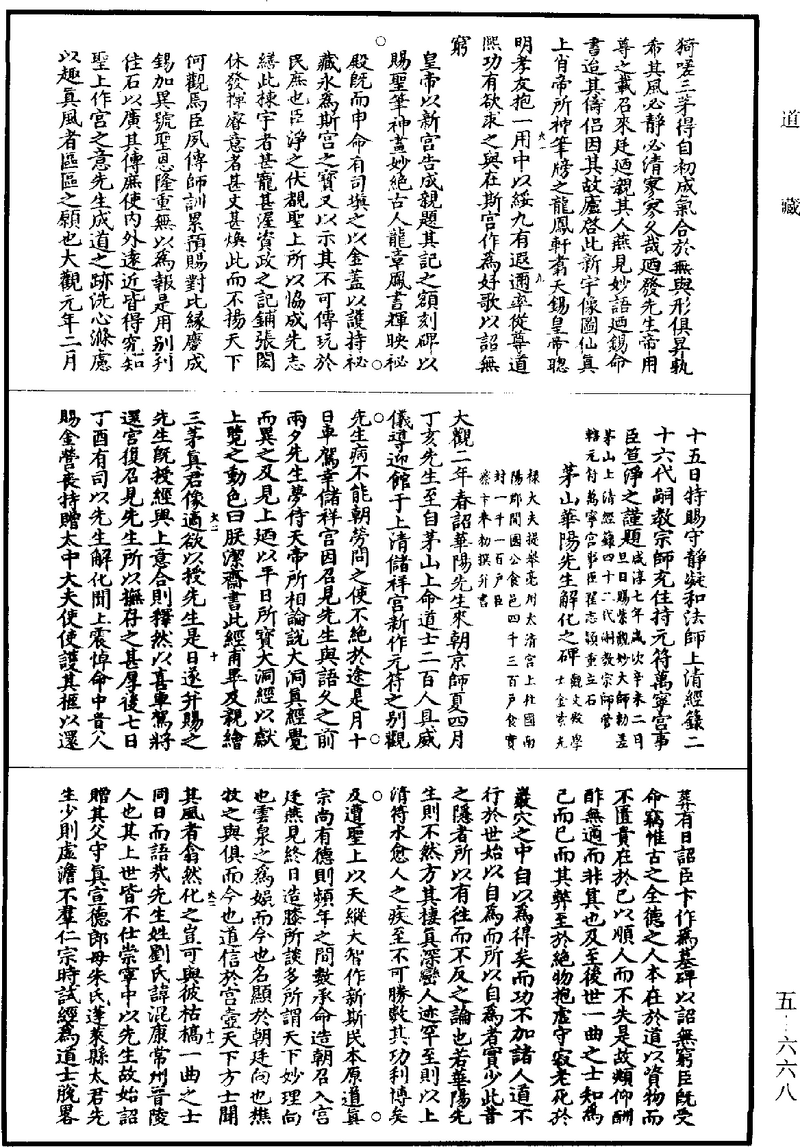 道藏
猗嗟三茅得自初成氣合於無與形俱昇軌
希其風必靜必清寥寥久哉廼發先生帝用
尊之載召來廷廼親其人燕見妙語廼錫命
書迨其儔侶因其故廬啓此新宇像圖仙真
上肖帝所神筆牓之龍鳳軒翥天錫皇帝聰
明孝友抱一用中以綏九有遐邇率從尊道
熙功有欲求之與在斯宮作為好歌以詔無
窮
皇帝以新宮告成親題其記之額刻碑以
賜聖筆神畫妙絕古人龍章鳳書輝映祕
殿既而申命有司填之以金蓋以護持祕
藏永為斯宮之寶又以示其不可傳玩於
民庶也臣淨之伏覩聖上所以協成先志
繕此棟宇者甚寵甚渥資政之記鋪張閎
休發揮睿意者甚文甚煥此而不揚天下
何觀焉臣夙傳師訓累預賜對比緣慶成
錫加異號聖恩隆重無以為報是用別刋
佳石以廣其傳庶使內外遠近皆得究知
聖上作宮之意先生成道之跡洗心滌慮
以趣真風者區區之願也大觀元年二月
十五日特賜守靜凝和法師上清經籙二
十六代嗣教宗師充住持元符萬寧宮事
臣笪淨之謹題咸淳七年歲次辛未二月
旦日賜紫觀妙大師勅差
茅山上清經籙四十二代嗣教宗師管
轄元符萬寧宮事臣翟志頴重立石
茅山華陽先生解化之碑觀文殿學
士金紫光
祿大夫提舉亳州太清宮上柱國南
陽郡開國公食邑四千三百戶食實
封一千一百戶臣
蔡卞奉勑撰并書
大觀二年春詔華陽先生來朝京師夏四月
丁亥先生至自茅山上命道士二百人具威
儀導迎館于上清儲祥宮新作元符之別觀
先生病不能朝勞問之使不絕於途是月十
日車駕幸儲祥宮因召見先生與語久之前
兩夕先生夢侍天帝所相論說大洞真經覺
而異之及見上廼以平日所寶大洞經以獻
上覽之動色曰朕潔齋書此經甫畢及親繪
三茅真君像適欲以授先生是日遂并賜之
先生既授經與上意合則釋然以喜車駕將
還宮復召見先生所以撫存之甚厚後七日
丁酉有司以先生解化聞上震悼命中貴人
賜金營喪特贈太中大夫使使護其柩以還
葬有日詔臣卞作為墓碑以詔無窮臣既受
命竊惟古之全德之人本在於道以資物而
不匱貴在於己以順人而不失是故頫仰酬
酢無適而非其也及至後世一曲之士知為
己而已而其弊至於絕物抱虛守寂老死於
巖穴之中自以為得矣而功不加諸人道不
行於世始以自為而所以自為者實少此昔
之隱者所以有往而不反之論也若華陽先
生則不然方其棲真深巒人迹罕至則以上
清符水愈人之疾至不可勝數其功利博矣
及遭聖上以天縱大智作新斯民本原道真
宗尚有德則頻年之間數承命造朝召入宮
廷燕見終日造膝所談多所謂天下妙理向
也雲泉之為娛而今也名顯於朝廷向也樵
牧之與俱而今也道信於宮壼天下方士聞
其風者翕然化之豈可與彼枯槁一曲之士
同日而語哉先生姓劉氏諱混康常州晉陵
人也其上世皆不仕崇寧中以先生故始詔
贈其父守真宣德郎母朱氏蓬萊縣太君先
生少則虛澹不羣仁宗時試經為道士脫略
五·六六八